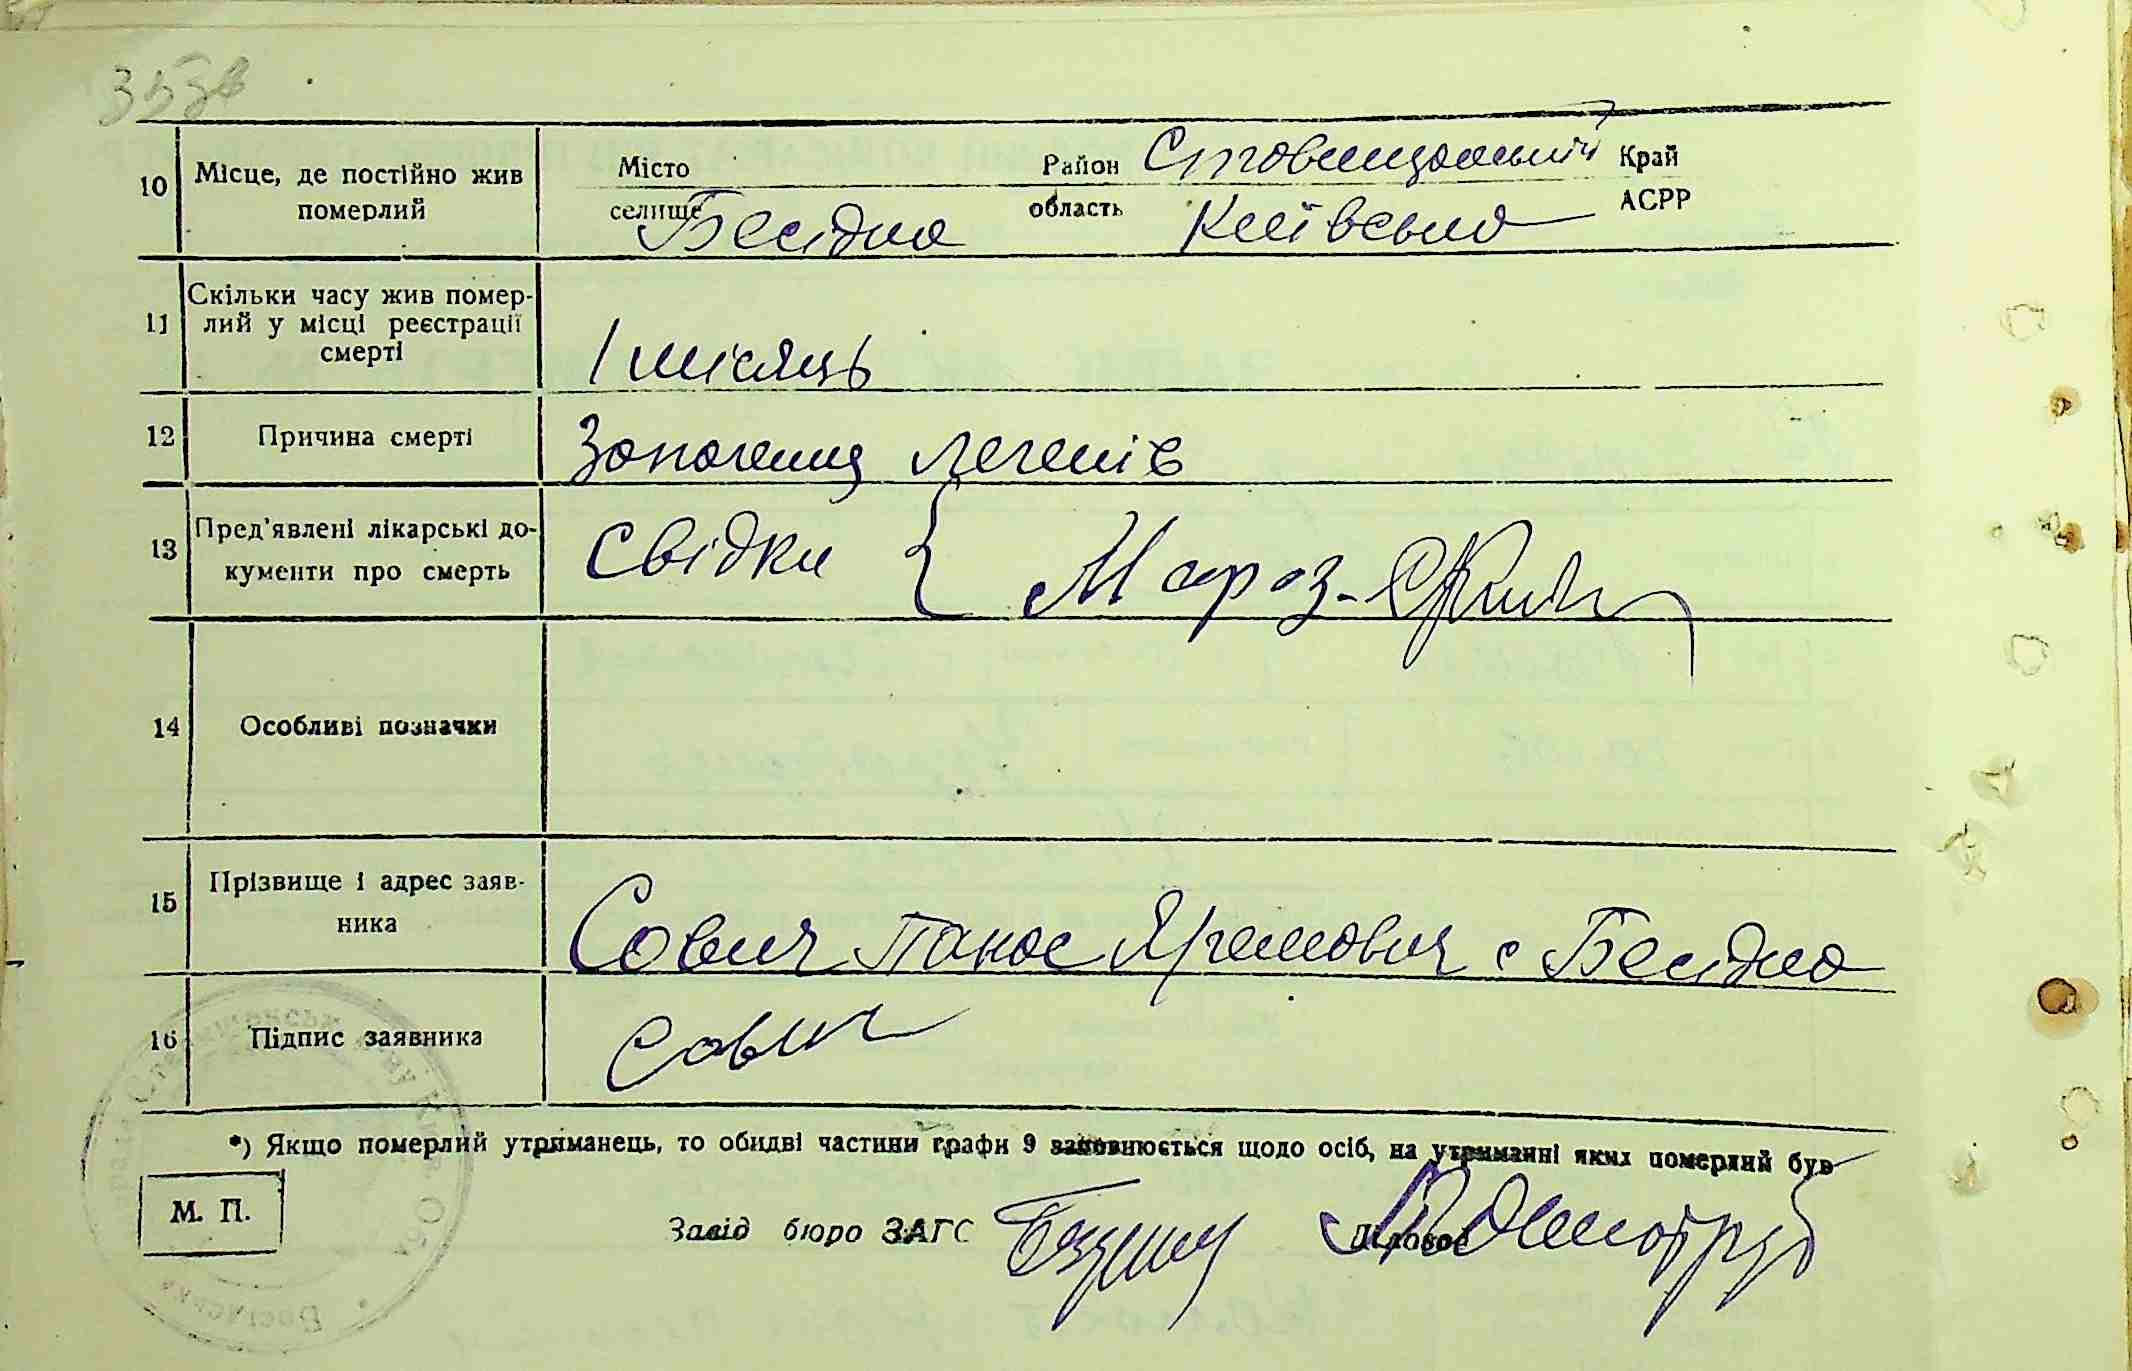 10 Місце, де постійно жив померлий
Місто Район Ставищанський Край
селище Бесідка область Київська АСРР
11 Скільки часу жив помер-
лий у місці реєстрації
смерті
1 місяць
12 Причина смерті Запаленя легенів
13 Пред'явлені лікарські до-
кументи про смерть
свідки { Мороз
14 Особливі позначки
15 Прізвище і адрес заяв-
ника
Савич Панас Яремович с Бесідка
16 Підпис заявника Савич
*) Якщо померлий утриманець, то обидві частини графи 9 заповнюється щодо осіб, на утриманні яких померлий був
М. П.
Завід бюро ЗАГС Діловод